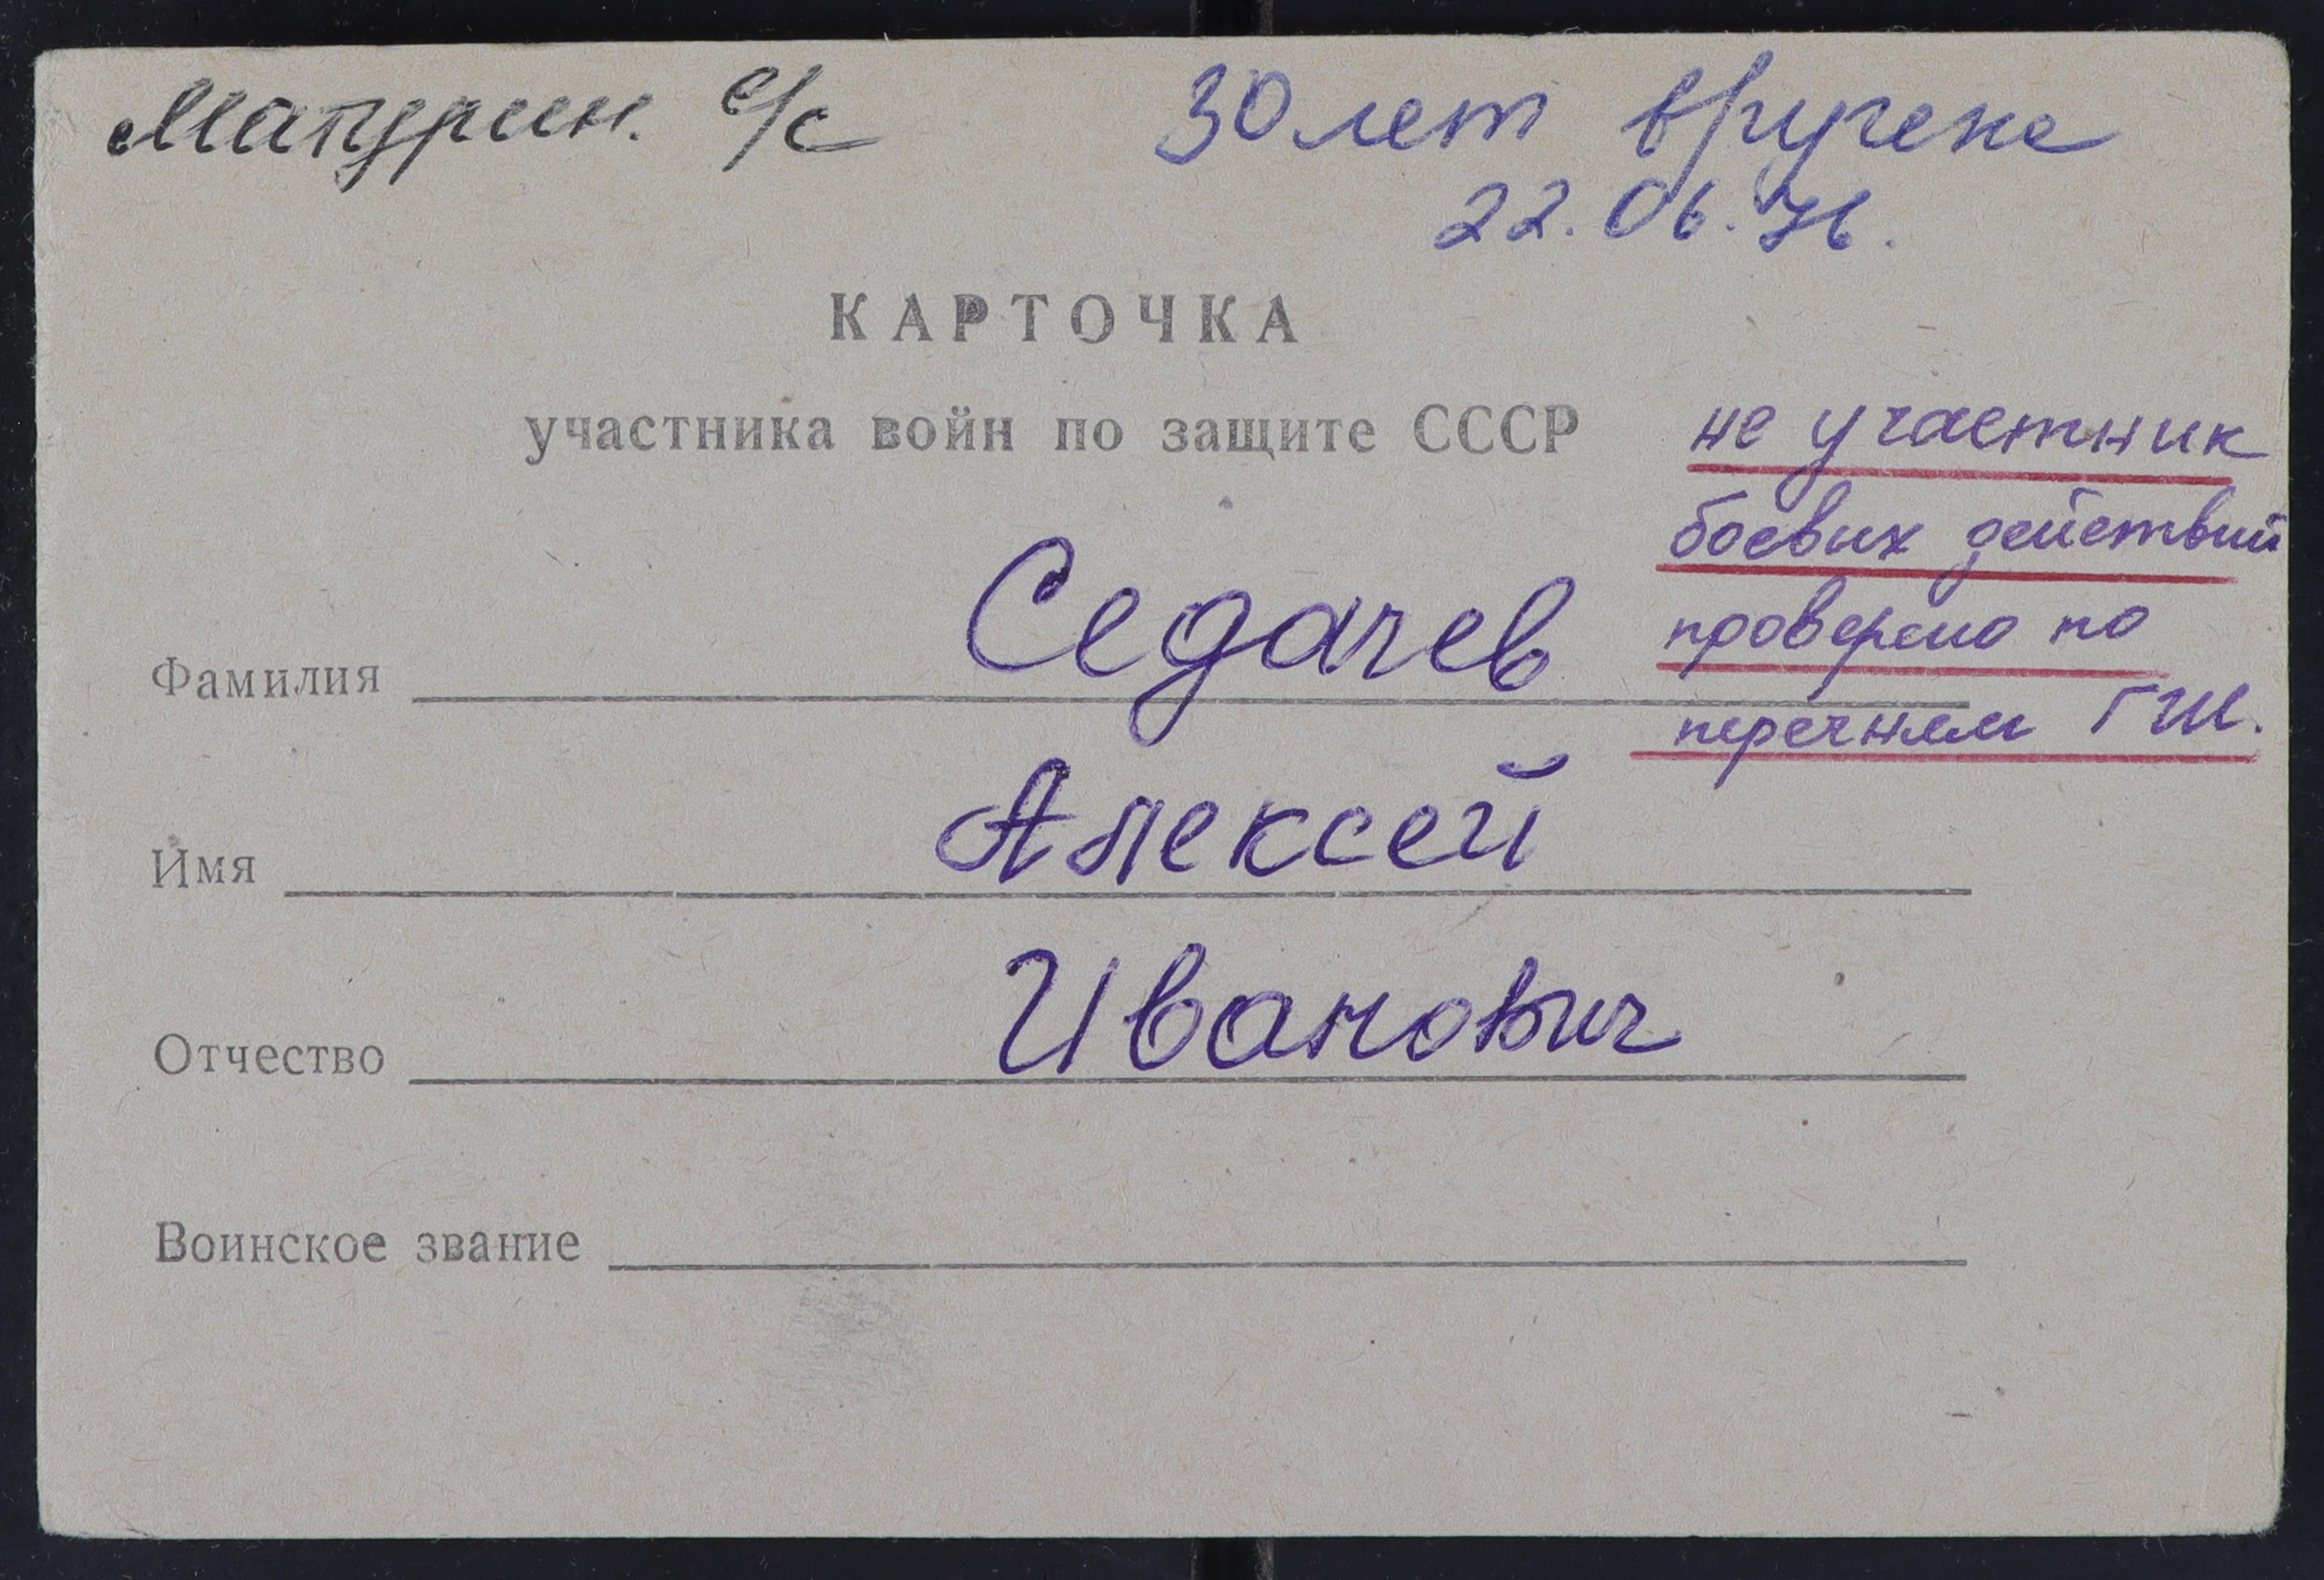 Мапурин. с/с
30 лет вручена
22.06.76.
КАРТОЧКА
участника войн по защите СССР
не участник
боевых действий
проверено по
перечням ГШ.
Фамилия Седачев
Имя Алексей
Отчество Иванович
Воинское звание